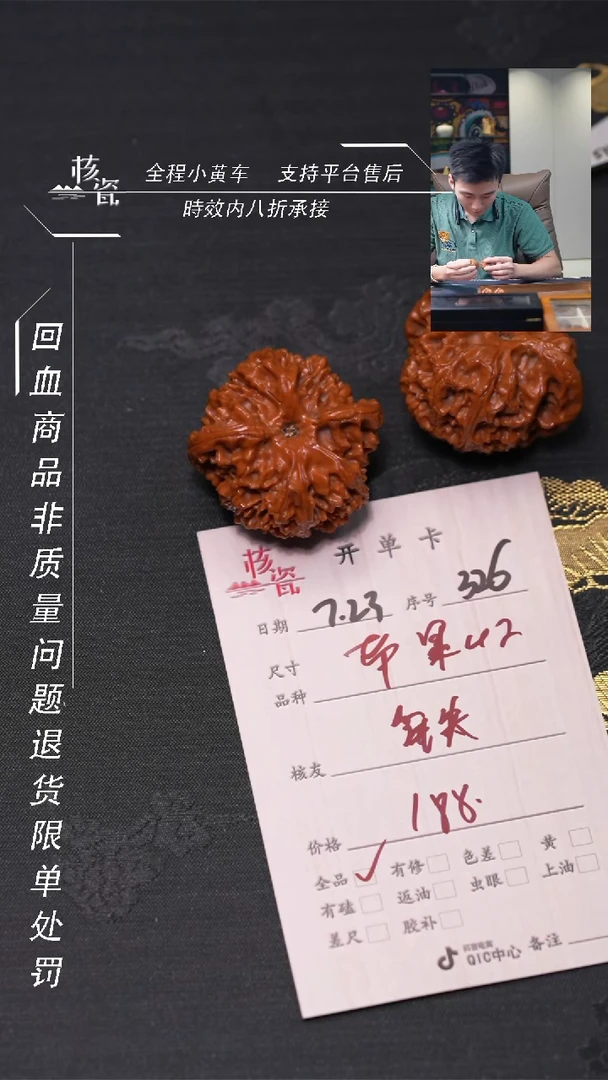 核瓷
全程小黄车 支持平台售后
時效内八折承接
回血商品非质量问题退货限单处罚
核瓷
开单卡
日期 7.23 序号 326
尺寸
品种 苹果42
核友
价格 198.
全品 ✓ 有修 色差 黄
有磕 返油 虫眼 上油
差尺 胶补
抖音电商
QIC中心 备注